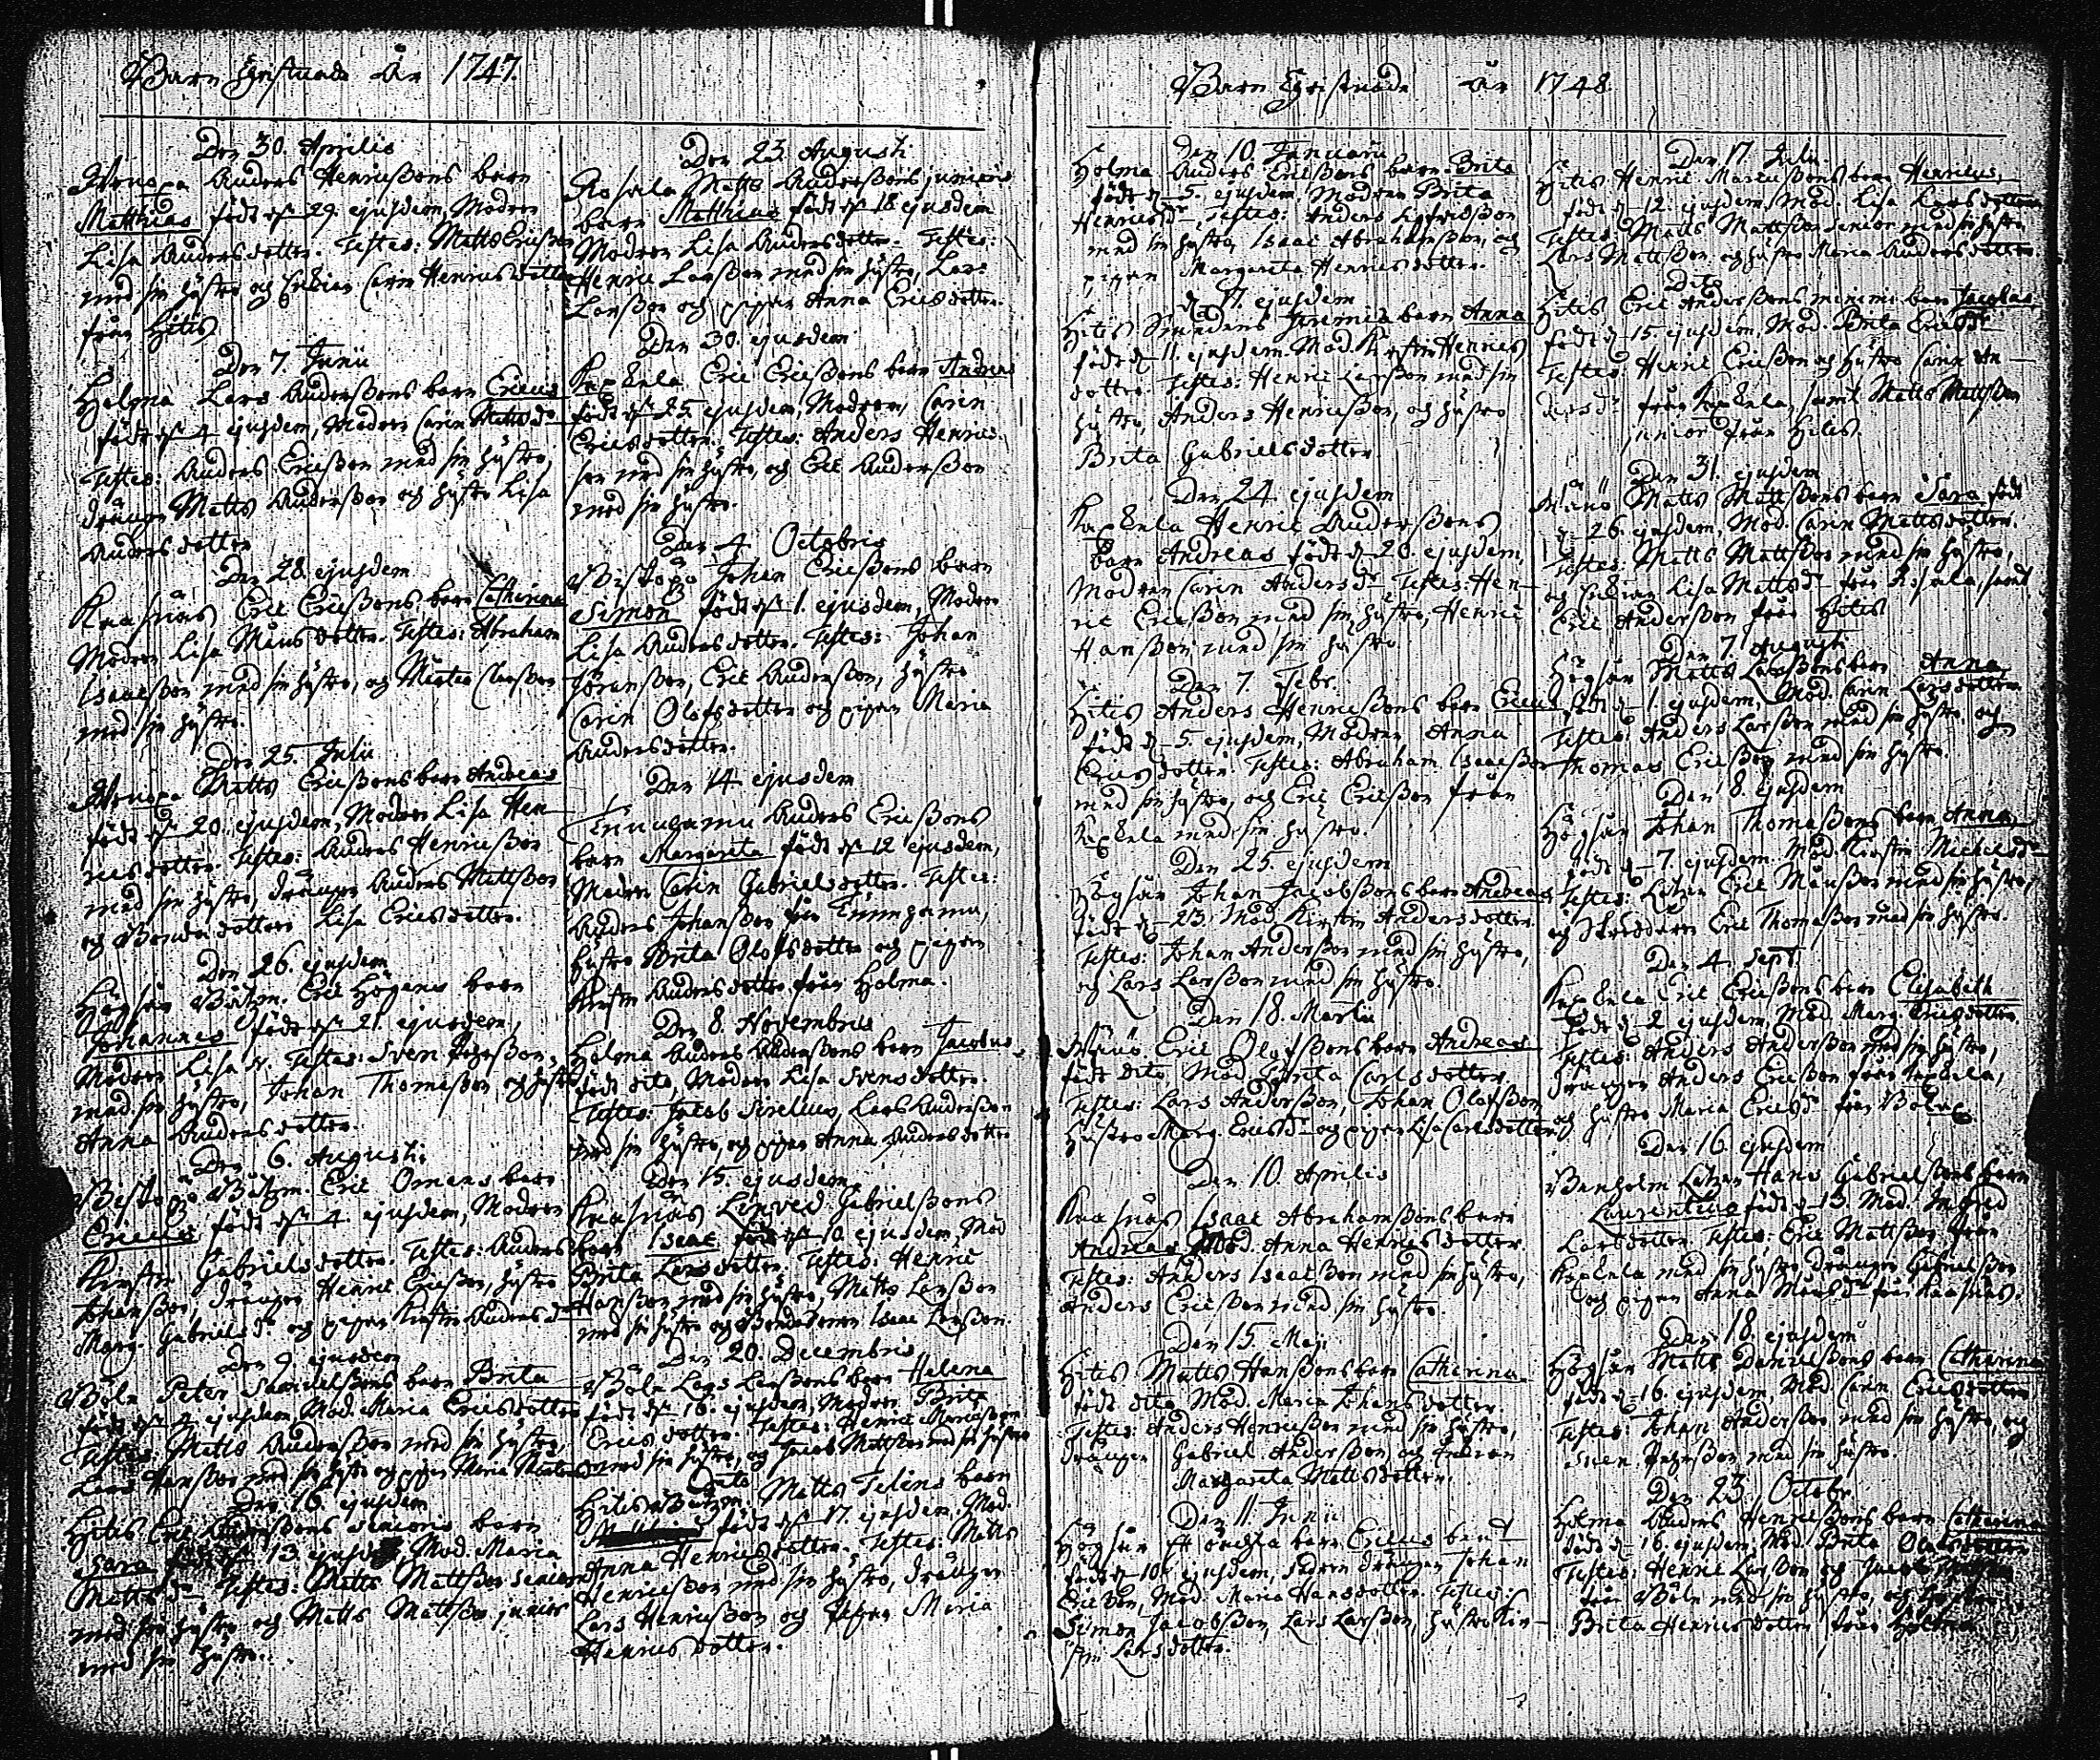 Barn Christnade År 1747.
Den 30. Aprilis
Anders Henricßons barn
Matthias född d. 29. ejusdem, Modren
Lisa Andersdotter. Testes: Matts Ericßon
med sin hustro och Enkian Carin Henricsdotter
från Hitis
Den 7. Junii
Holma Lars Andersßons barn Ericus
född d. 4 ejusdem, Modren Carin Mattsdr
Testes: Anders Ericßon med sin hustro,
drängen Matts Andersßon och hustro Lisa
Andersdotter
Den 28. ejusdem
Kaasnäs Eric Ericßons barn Catharina
Modren Lisa Månsdotter. Testes: Abraham
Isaacsßon med sin hustro, och Mårten Clasßon
med sin hustro.
Den 25. Julii
Matts Ericßons barn Andreas
född d. 20. ejusdem, Modren Lisa Hen-
ricsdotter. Testes: Anders Henricßon
med sin hustro, drängen Anders Mattsßon
och Bondedottren Lisa Ericsdotter.
Den 26. ejusdem
Högsår Båtzm. Eric Högmans barn
Johannes född d. 21. ejusdem,
Modren Lisa N. Testes: Sven
med sin hustro, Johan Thomasßon, och hustro
Anna Andersdotter.
Den 6. Augusti.
Biskopsö Båtzm. Eric Omans barn
Ericus född d. 4. ejusdem, Modren
Kirstin Gabrielsdotter. Testes: Anders
Johansßon, drängen Henric Ericßon, hustro
Marg. Gabrielsdr. och pigan Kirstin Andersdr
Den 9. ejusdem
Böle Peter Samuelsßons barn Brita
född d. 4. ejusdem, Mod. Maria Ericsdotter
Testes: Matts Andersßon med sin hustro,
Lars Hansßon med sin hustro och pigan Maria
Den 16. ejusdem
Hitis Eric Andersßons senioris barn
Sara född d. 13. ejusdem Mod. Maria
Mattsdr. Testes: Matts Mattsßon senior
med sin hustro och Matts Mattsßon junior
med sin hustro.
Den 23. Augusti
Rosala Matts Andersßons junioris
barn Matthias född d. 18 ejusdem
Modren Lisa Andersdotter. Testes:
Henric Larsßon med sin hustro, Lars
Larsßon och pigan Anna Ericsdotter.
Den 30. ejusdem
Eric Ericßons barn Andreas
född d. 25. ejusdem, Modren, Carin
Ericsdotter. Testes: Anders Henrics-
son med sin hustro, och Eric Andersßon
med sin hustro.
Den 4. Octobris
Biskopsö Johan Ericßons barn
Simon född d. 1. ejusdem, Modren
Lisa Andersdotter. Testes: Johan
Göransßon, Eric Andersßon, hustro
Carin Olofsdotter och pigan Maria
Andersdotter.
Den 14. ejusdem
Anders Ericßons
barn Margareta född d. 12 ejusdem,
Modren Carin Gabrielsdotter. Testes:
Anders Johansßon från
hustro Brita Olofsdotter och pigan
Kirstin Andersdotter från Holma.
Den 8. Novembris
Holma Anders Andersßons barn Jacobus
född dito, Modren Lisa Svensdotter.
Testes: Jacob Sirelius, Lars Andersßon
med sin hustro, och pigan Anna Andersdotter
Den 15. ejusdem
Kaasnäs Gabrielsßons
barn Isaac född d. 10. ejusdem, Mod
Brita Larsdotter. Testes: Henric
Hansßon med sin hustro, Matts Larsßon
med sin hustro och Bondedrengen Isaac Larsßon.
Den 20. Decembris
Böle Lars Larsßons barn Helena
född d. 16. ejusdem, Modren Brita
Ericsdotter. Testes: Henric
med sin hustro, och Jacob Mattsßon med sin hustro
Dito
Hitis Båtzm. Matts Felens barn
född d. 17. ejusdem, Mod.
Anna Henricsdotter. Testes: Matts
Henricßon med sin hustro, drängen
Lars Henricßon och pigan Maria
Henricsdotter.
Barn Christnade År 1748.
Den 10. Januarii
Holma Anders Ericßons barn Brita
född d. 5. ejusdem, Modren Brita
Henricsdr. Testes: Anders Sigfridsßon
med sin hustro, Isaac Abrahamsßon, och
pigan Margareta Henricsdotter.
d. 17. ejusdem
Hitis Smedens Jeremia barn Anna
född d. 11. ejusdem. Mod. Kirstin Henrics
dotter. Testes: Henric Larsßon med sin
hustro, Anders Henricßon, och hustro
Brita Gabrielsdotter.
Den 24. ejusdem
Henric Andersßons
barn Andreas född d. 20. ejusdem,
Modren Carin Andersdr. Testes: Hen-
ric Ericßon med sin hustro, Henric
Hansßon med sin hustro.
Den 7. Febr.
Hitis Anders Henricßons barn Ericus
född d. 5. ejusdem, Modren Anna
Ericsdotter. Testes: Abraham Isaacßon
med sin hustro, och Eric Ericßon från
med sin hustro.
Den 25. ejusdem
Högsår Johan Jacobßons barn Andreas
född d. 23. Mod. Kirstin Andersdotter.
Testes: Johan Andersßon med sin hustro,
och Lars Larsßon med sin hustro.
Den 18. Martii
Månö Eric Olofsßons barn Andreas
född dito, Mod. Brita Carlsdotter,
Testes: Lars Andersßon, Johan Olofsßon
hustro Marg. Ericsdr. och pigan Lisa Carlsdotter
Den 10. Aprilis
Kaasnäs Isaac Abrahamsßons barn
Andreas, Mod. Anna Henricsdotter.
Testes: Anders Isaacsßon med sin hustro,
Anders Ericßon med sin hustro.
Den 15. Maji
Hitis Matts Hansßons barn Catharina
född dito, Mod. Maria Johansdotter.
Testes: Anders Henricßon med sin hustro,
drängen Gabriel Andersßon och
Margareta Mattsdotter.
Den 11. Junii
Högsår Et oächta barn Ericus
född d. 10. ejusdem, fadren drängen Johan
Ericßon, Mod. Maria Hansdotter. Testes:
Simon Jacobßon, Lars Larsßon, hustro Kir-
stin Larsdotter.
Den 17. Julii.
Hitis Henric Marcusßons barn Henricus
född d. 12. ejusdem, Mod. Lisa Larsdotter
Testes: Matts Mattsßon senior med sin hustro
Lars Mattsßon, och hustro Maria Andersdotter.
Dito
Hitis Eric Andersßons minimi barn Jacobus
född d. 15. ejusdem, Mod. Brita Ericsdr
Testes: Henric Ericßon och hustro Carin An-
dersdr. från samt Matts Mattsßon
junior från Hitis.
Den 31. ejusdem
Månö Matts Mattsßons barn Sara född
d. 26. ejusdem, Mod. Carin Mattsdotter.
Testes: Matts Mattsßon med sin hustro,
och Enkian Lisa Mattsdr från Rosala, samt
Eric Andersßon från Hitis
Den 7. Augusti
Högsår Matts Larsßons barn Anna
född d. 1. ejusdem, Mod. Carin Larsdotter
Testes: Anders Larsßon med sin hustro, och
Thomas Ericßon med sin hustro.
Den 8. ejusdem
Högsår Johan Thomasßons barn Anna
född d. 7. ejusdem. Mod. Kirstin Michelsdr
Testes: Lotzen Eric Månsßon med sin hustro,
och Skreddaren Eric Thomasßon med sin hustro.
Den 4. Sept.
Eric Ericßons barn Elisabeth
född d. 2 ejusdem, Mod. Marg. Ericsdotter.
Testes: Anders Andersßon med sin hustro,
drängen Anders Ericßon från
och hustro Maria Ericsdr. från Böle.
Den 16. ejusdem
Lotzen Hans Gabrielsßons barn
Laurentius född d. 13. Mod. Ingrid
Larsdotter. Testes: Eric Mattsßon från
med sin hustro, drängen Gabrielsßon
och pigan Anna Månsdr från Kaasnäs.
Den 18. ejusdem
Högsår Matts Danielsßons barn Catharina
född d. 16. ejusdem, Mod. Carin Ericsdotter
Testes: Johan Andersßon med sin hustro, och
Sven med sin hustro.
Den 23. Octobr.
Holma Anders Henricßons barn Catharina
född d. 16. ejusdem, Mod. Brita Olofsdotter
Testes: Henric Larsßon och Jacob
från Böle med sin hustro, och
Brita Henricsdotter från Holma